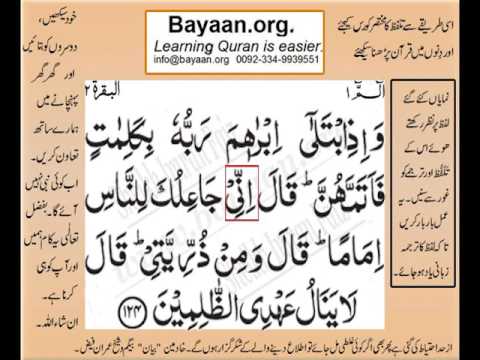 Bayaan.org.
Learning Quran is easier.
info@bayaan.org 0092-334-9939551
اسی طریقے سے تلفظ کا مختصر کورس کیجئے
اور دنوں میں قرآن پڑھنا سیکھئے
خود سیکھیں،
دوسروں کو بتائیں
اور گھر گھر
پہنچانے میں
ہمارے ساتھ
تعاون کریں۔
اب کوئی نبی نہیں
آئے گا۔ بفضل
تعالٰی یہ کام ہم
اور آپ کو ہی
کرنا ہے۔
ان شاءاللہ۔
البقرة ٢
الٓمّٓ ١
وَ اِذِ ابْتَلٰۤى اِبْرٰهٖمَ رَبُّهٗ بِكَلِمٰتٍ
فَاَتَمَّهُنَّ ؕ قَالَ اِنِّیْ جَاعِلُكَ لِلنَّاسِ
اِمَامًا ؕ قَالَ وَ مِنْ ذُرِّیَّتِیْ ؕ قَالَ
لَا یَنَالُ عَهْدِی الظّٰلِمِیْنَ ﴿۱۲۴﴾
نمایاں کئے گئے
لفظ پر نظر رکھتے
ھوئے اس کے
تلفظ اور ترجمے کو
غور سے سنیں۔ یہ
عمل بار بار کریں
تاکہ لفظ کا ترجمہ
زبانی یاد ہو جائے۔
از حد احتیاط کی گئی ہے پھر بھی اگر کوئی غلطی مل جائے تو اطلاع دینے والے کے شکر گزار ہوں گے۔ خادمین "بیان" بیگم و شیخ عمران فیض۔